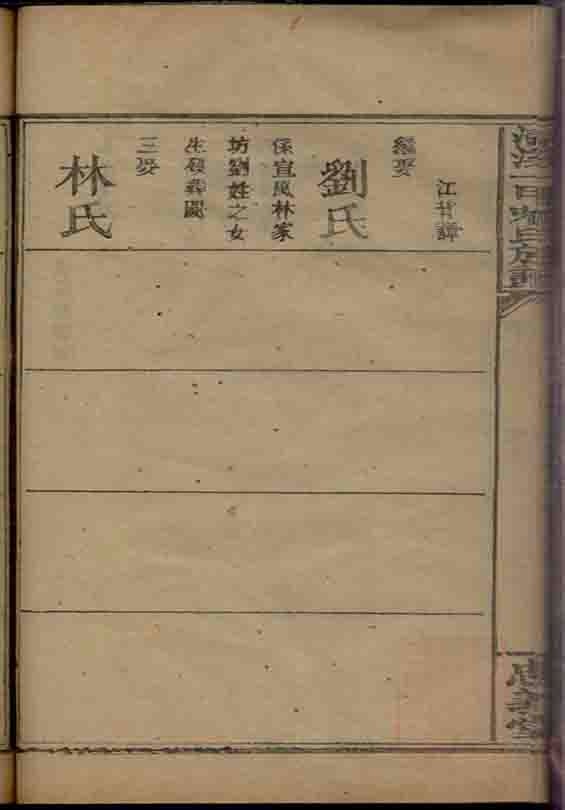 江背譚
繼娶
劉氏
係宣風林家
坊劉姓之女
生殁葬闕
三娶
林氏